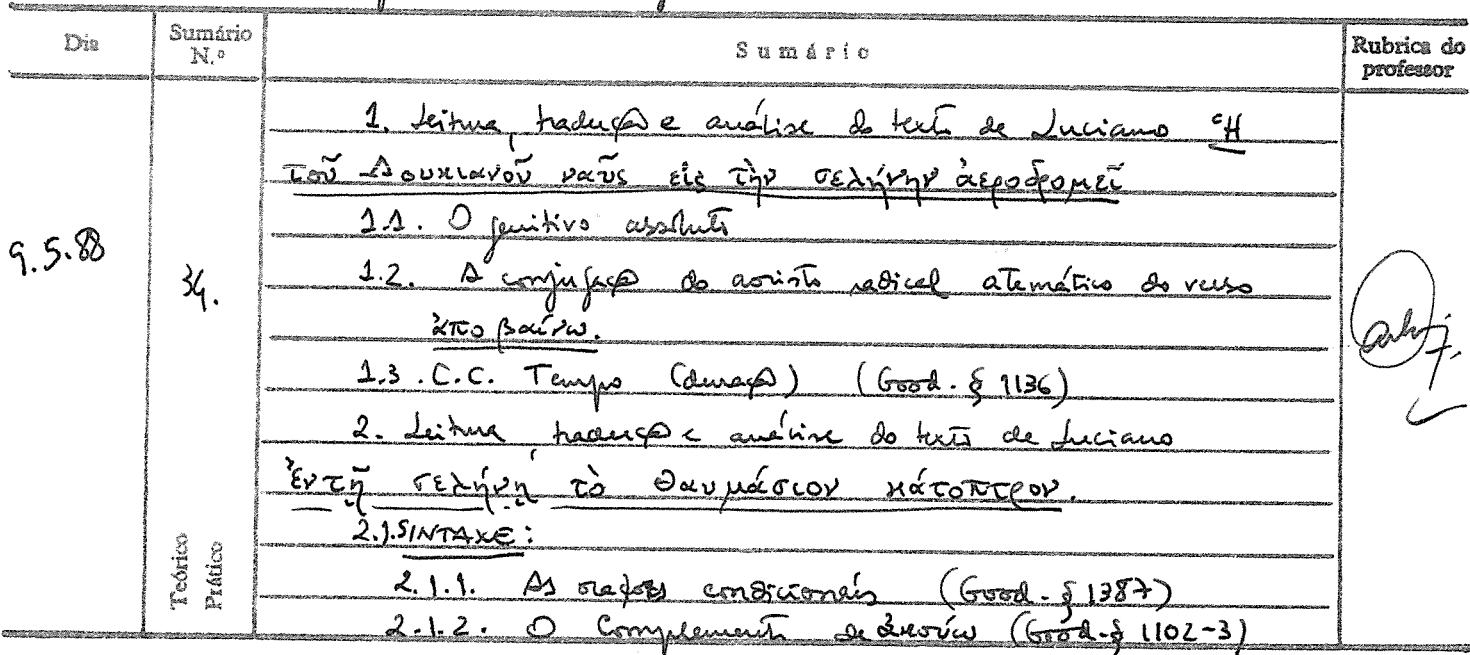 Dia
Sumário N.º
Sumário
Rubrica do professor
9.5.88
34.
Teórico
Prático
1. Leitura, tradução e análise do texto de Luciano Ἡ
τοῦ Λουκιανοῦ ναῦς εἰς τὴν σελήνην ἀεροδρομεῖ
1.1. O genitivo absoluto
1.2. A conjugação do aoristo radical atemático do verbo
ἀποβαίνω.
1.3. C.C. Tempo (duração) (Good. § 1136)
2. Leitura, tradução e análise do texto de Luciano
Ἐν τῇ σελήνῃ τὸ θαυμάσιον κάτοπτρον.
2.1. SINTAXE:
2.1.1. As orações condicionais (Good. § 1387)
2.1.2. O Complemento de ἀκούω (Good. § 1102-3)